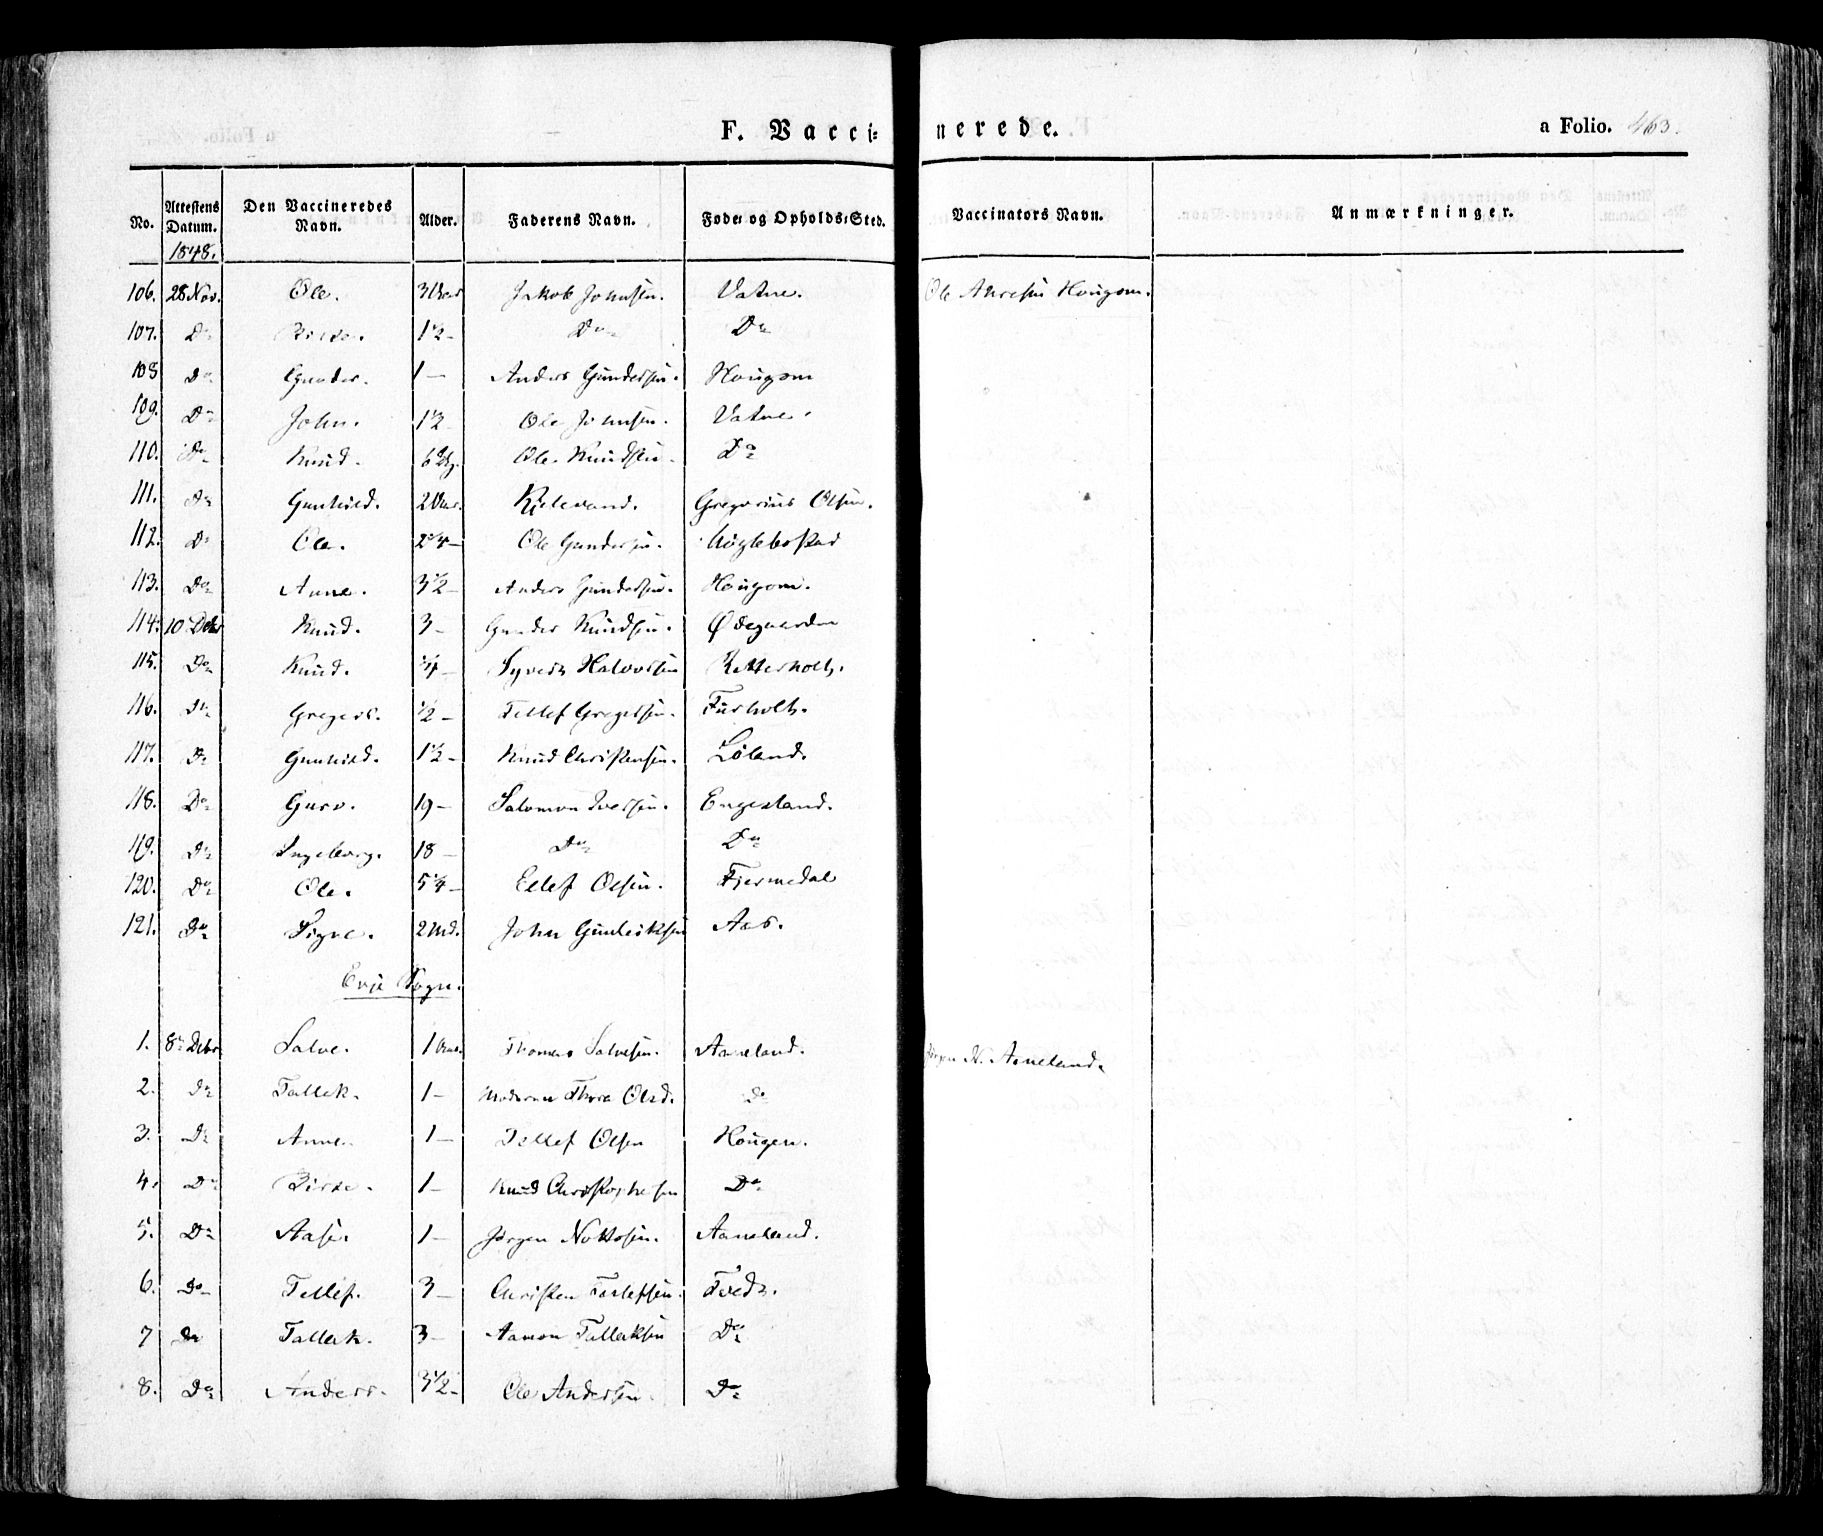 F. Vacci= nerede. a Folio. 463.
No. Attestens Datum. Den Vaccineredes Navn. Alder. Faderens Navn. Føde= og Opholds=Sted. Vaccinators Navn. Anmærkninger.
1848.
106. 28 Nov. Ole. 3 Jakob Johnsen. Vatne. Ole Hougom.
107. Do 1½ Do Do
108 Do Gunder. 1 — Anders Gundersen. Hougom
109. Do John. 1½ Ole Johnsen. Vatne.
110. Do Knud. 6 Ole Knudsen. Do
111. Do Gunhild. 2 Aar. Kjelevand. Gregorius Olsen.
112. Do Ole. 2¾ — Ole Gundersen.
113. Do Anne. 3½ — Anders Gundersen. Hougom.
114. 10 Debr Knud. 3 — Gunder Knudsen. Ødegaarden
115. Do Knud. ¾ — Syvert Halvorsen Rettersholt.
116. Do Gregers. ½ — Tellef Gregersen. Furholt.
117. Do Gunhild. 1½ — Knud Christensen. Löland.
118. Do Guro. 19 — Salomon Iversen. Engesland.
119. Do Ingeborg. 18 — Do Do
120. Do Ole. 5¼ — Ellef Olsen. Fjermedal
121. Do Signe. 2 Md. John
Evje Sogn.
1. 8de Debr Salve. 1 Aar. Thomas Salvesen. Aaneland. Jørgen N. Aaneland.
2. Do Tallek. 1 — Moderen Thore Olsd. Do
3. Do Anne. 1 — Tellef Olsen Hougen.
4. Do Birte. 1 — Knud Christophersen Do
5. Do Aase. 1 — Jörgen Aaneland.
6. Do Tellef. 3 — Christen Tellefsen. Tvedt.
7 Do Tallak. 3 — Aamon Tallaksen Do
8. Do Anders. 3½ — Ole Andersen. Do